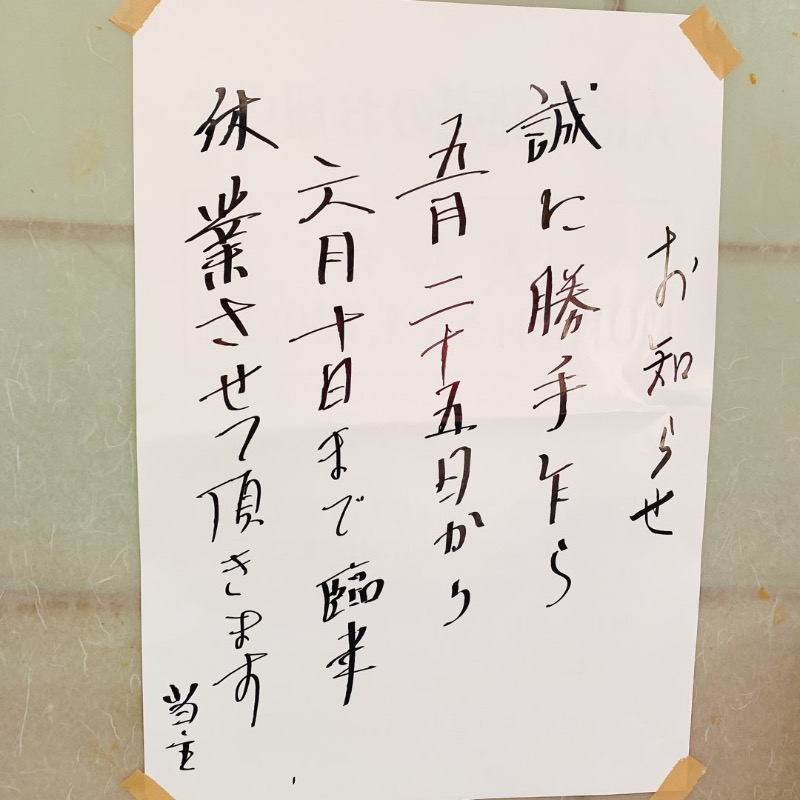 お知らせ
誠に勝手乍ら
五月二十五日から
六月十日まで臨時
休業させて頂きます
当主